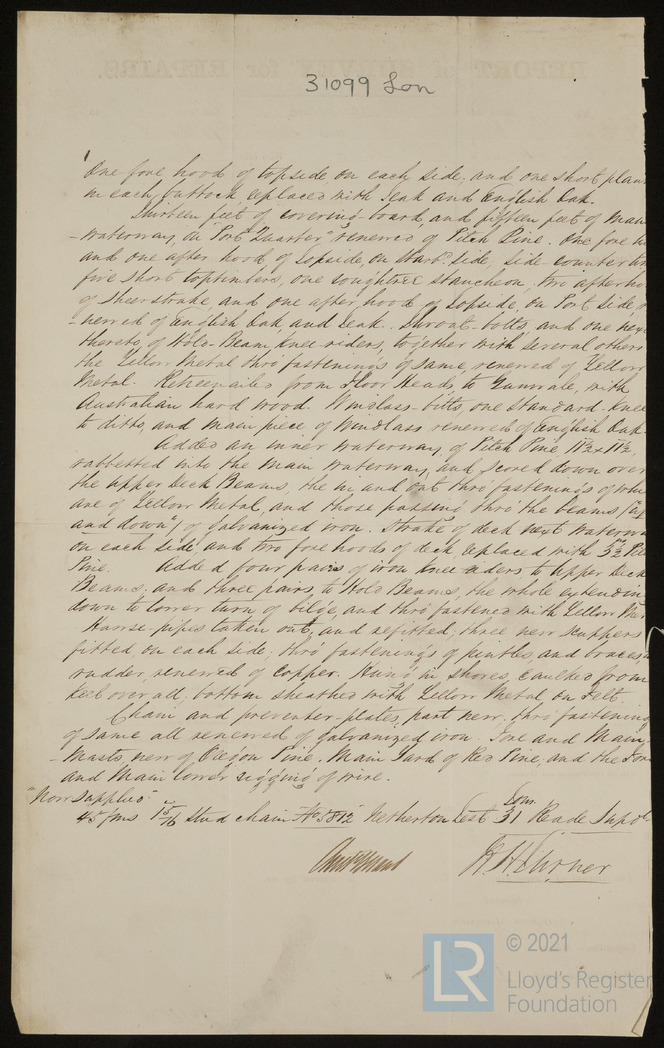 31099 Lon
One fore hood of topside on each side, and one short plan
in each buttock replaced with Teak and English Oak.
Thirteen feet of covering board, and fifteen feet of Main
-waterway, on "Port Quarter" renewed of Pitch Pine. One fore
and one after hood of topside, on Starbd side, side counter
five short toptimbers, one roughtree stauncheon, two after
of Sheerstrake, and one after hood of topside, on Port side,
-newed of English Oak and Teak. Throat-bolts, and one next
thereto, of Hold-Beam knee-riders, together with several others
the Yellow Metal thro' fastenings of same, renewed of Yellow
Metal. Retreenailed from Floor Heads, to Gunwale, with
Australian hard wood. Windlass-bitts, one Standard-knee
to ditto, and main piece of Windlass renewed of English Oak.
Added an inner Waterway, of Pitch Pine, 11½ x 11½,
rabbetted into the Main Waterway, and scored down over
the upper Deck Beams, the in, and out thro' fastenings of
are of Yellow Metal, and those passing thro' the beams
and down", of Galvanized iron. Strake of deck next
on each side, and two fore hoods of deck replaced with 3½
Pine. Added four pairs of iron knee riders to Upper Deck
Beams, and three pairs to Hold Beams, the whole
down to lower turn of bilge, and thro' fastened with Yellow
Hawse-pipes taken out, and refitted; three new scuppers
fitted, on each side; thro' fastenings of pintles, and braces,
rudder, renewed of copper. Hung in shores, caulked from
keel over all; bottom sheathed with Yellow Metal on Felt.
Chain and preventer plates, part new, thro' fastening
of same all renewed of Galvanized iron. Fore and Main-
-Masts, new of Oregon Pine. Main Yard of Red Pine, and the
and Main lower rigging of wire.
"Now supplied"
45 fms 1 5/16 Stud chain No 5812 Netherton Test 31 Tons Reade Supdt
R H Turner
© 2021
LR
Lloyd's Register
Foundation